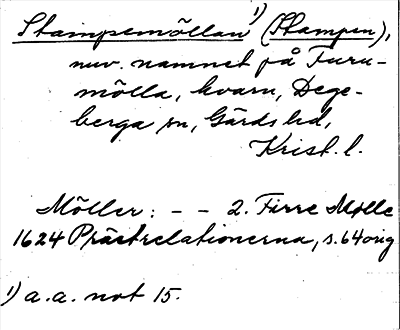 Stampemöllan¹⁾ (Stampen),
nuv. namnet på Furu-
mölla, kvarn, Dege-
berga sn, Gärds hd,
Krist. l.
Möller: – – 2. Firre Mølle
1624 Prästrelationerna, s. 64 orig
¹⁾ a.a. not 15.